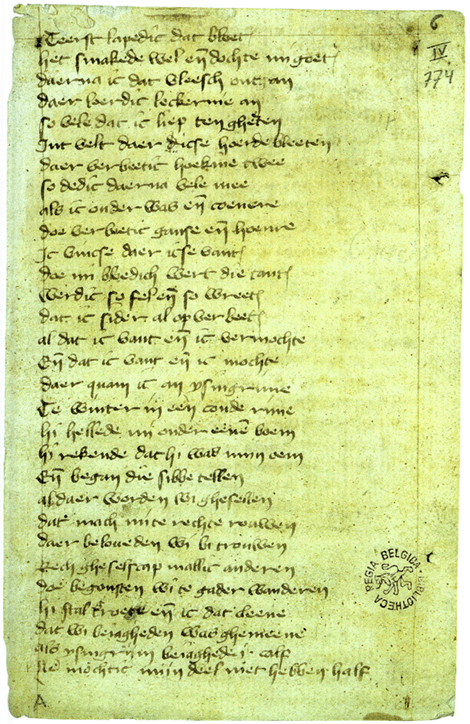 6
IV
774
Teerst lapedic dat bloet
het smakede wel eñ dochte mi goet
daerna ic dat vleesch ontgan
daer leerdic leckernie an
so vele dat ic liep ten gheten
Int velt daer dicse hoerde bleeten
daer verbeetic hoekine twee
so dedic daerna vele mee
als ic onder was eñ coenere
doe verbeetic ganse eñ hoenre
Ic vincse daer icse vant
doe mi bloedich wert die tant
werdic so fel eñ so wreet
dat ic sider al op verbeet
al dat ic vant eñ ic vermochte
Eñ dat ic vant eñ ic mochte
daer quam ic an ysingrime
Te winter in een coude rime
hi hellede mi onder eenen boem
hi rekende dat hi was mijn oem
Eñ began die sibbe tellen
aldaer worden wi ghesellen
dat mach mi te rechte rouwen
daer beloueden wi bi trouwen
Rech gheselscap mallic anderen
doe begonsten wi te gader wanderen
hi stal eñ ic dat cleene
dat wi beiagheden was ghemeene
als ysingrijn beiaghede .i. calf
ne mochtic mijn deel niet hebben half
A
REGIA BELGICA BIBLIOTHECA